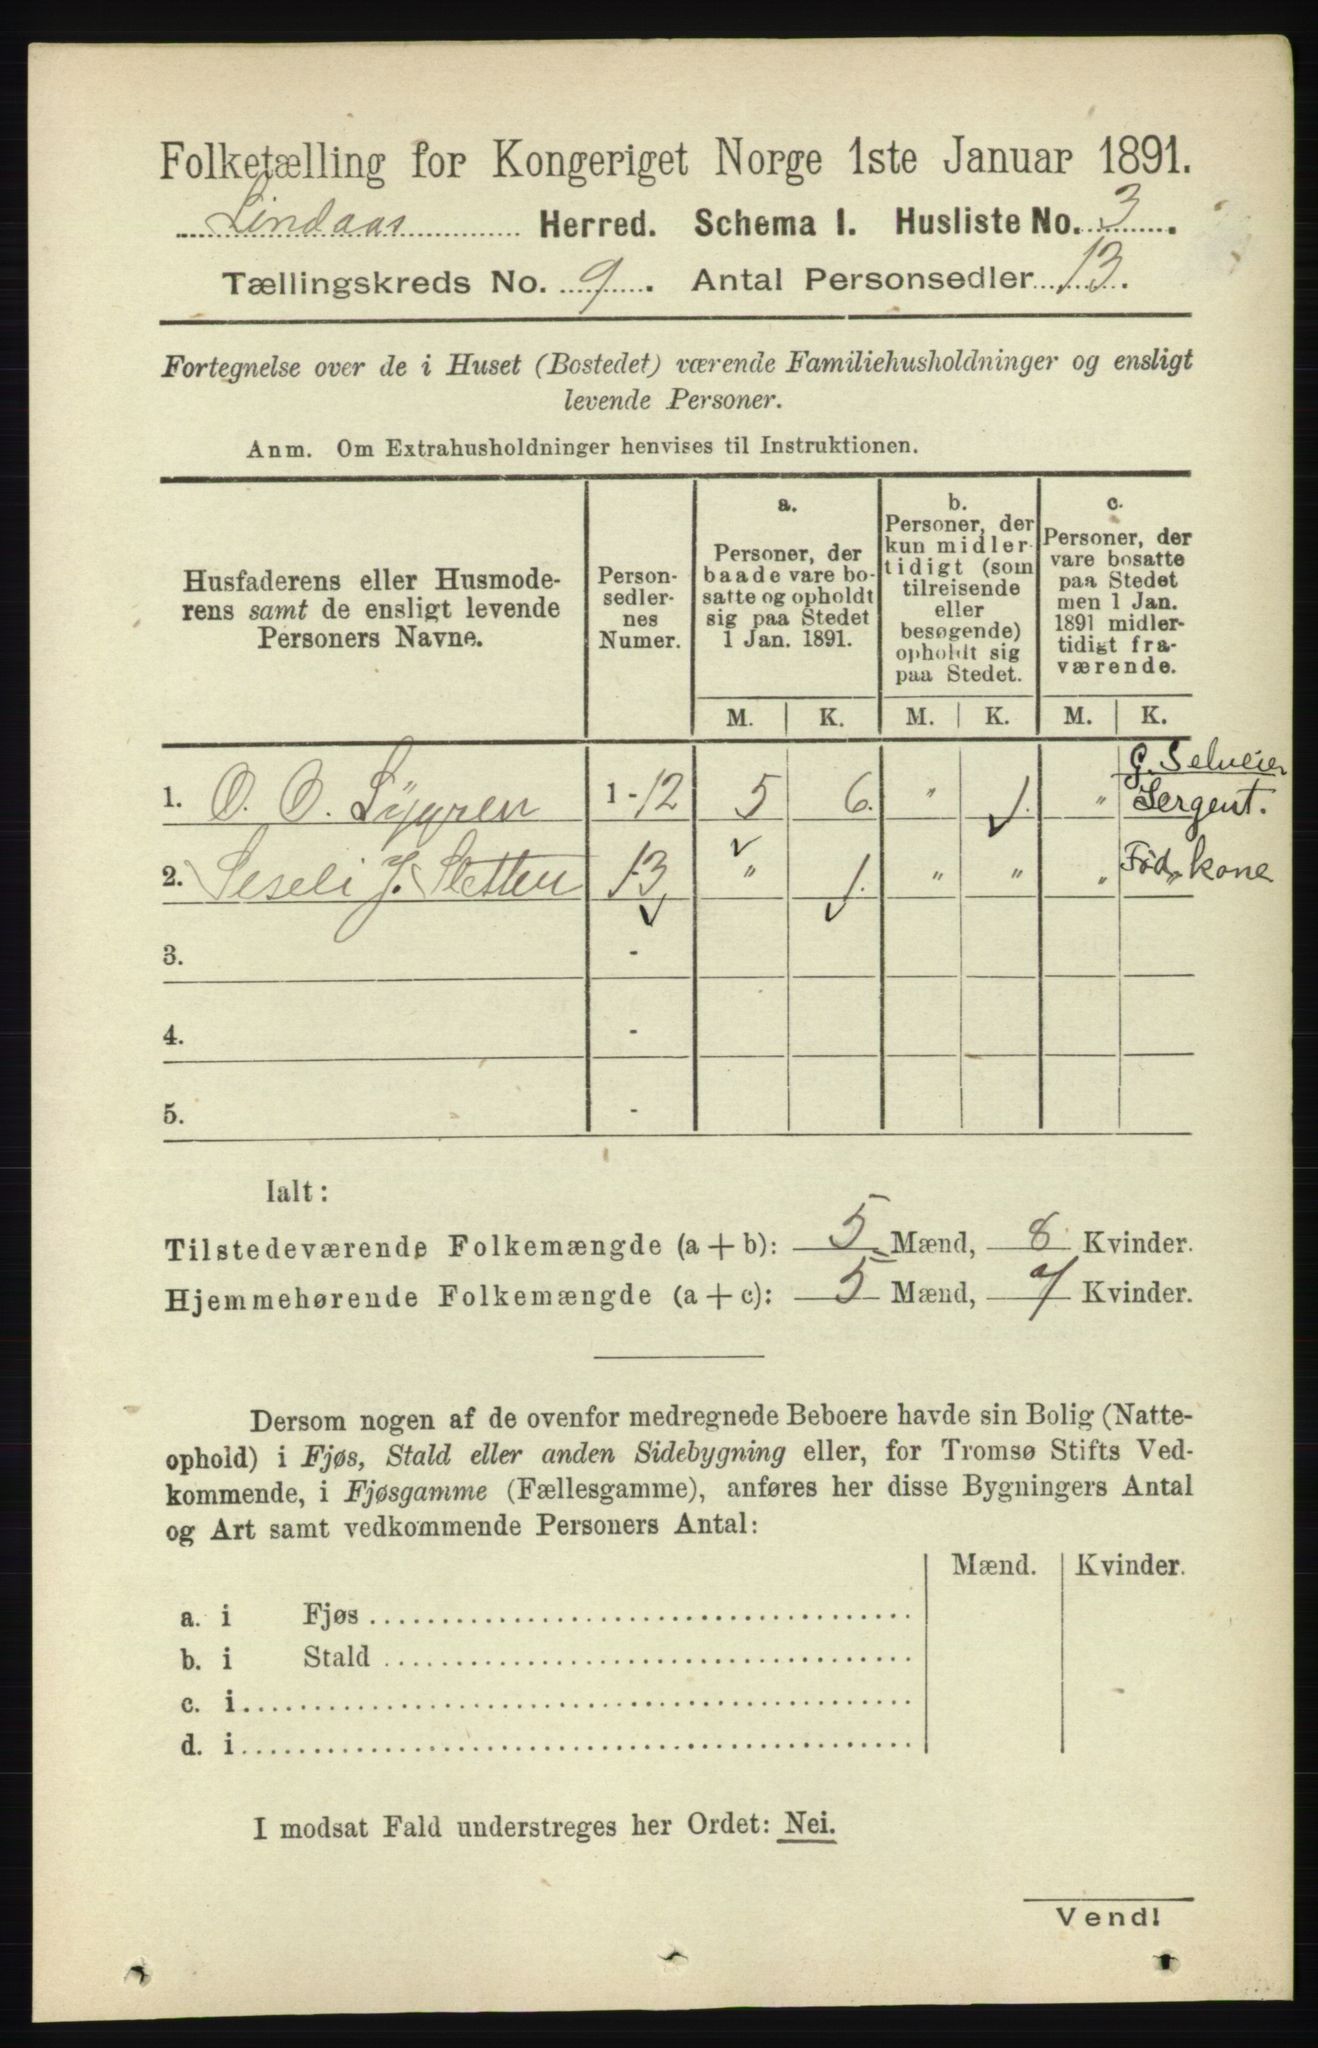 Folketælling for Kongeriget Norge 1ste Januar 1891.
Lindaas Herred. Schema I. Husliste No. 3.
Tællingskreds No. 9. Antal Personsedler 13.
Fortegnelse over de i Huset (Bostedet) værende Familiehusholdninger og ensligt
levende Personer.
Anm. Om Extrahusholdninger henvises til Instruktionen.
Husfaderens eller Husmode-
rens samt de ensligt levende
Personers Navne.
Person-
sedler-
nes
Numer.
a.
Personer, der
baade vare bo-
satte og opholdt
sig paa Stedet
1 Jan. 1891.
b.
Personer, der
kun midler-
tidigt (som
tilreisende
eller
besøgende)
opholdt sig
paa Stedet.
c.
Personer, der
vare bosatte
paa Stedet
men 1 Jan.
1891 midler-
tidigt fra-
værende.
M. K. M. K. M. K.
G. Selveier
1. O. O. Lygren 1-12 5 6. " 1. " Sergent.
2. Seseli J. Sletten 13 " 1. " " " Fød. kone
3. -
4. -
5. -
Ialt:
Tilstedeværende Folkemængde (a + b): 5 Mænd, 8 Kvinder.
Hjemmehørende Folkemængde (a + c): 5 Mænd, 7 Kvinder.
Dersom nogen af de ovenfor medregnede Beboere havde sin Bolig (Natte-
ophold) i Fjøs, Stald eller anden Sidebygning eller, for Tromsø Stifts Ved-
kommende, i Fjøsgamme (Fællesgamme), anføres her disse Bygningers Antal
og Art samt vedkommende Personers Antal:
Mænd. Kvinder.
a. i Fjøs
b. i Stald
c. i
d. i
I modsat Fald understreges her Ordet: Nei.
Vend!